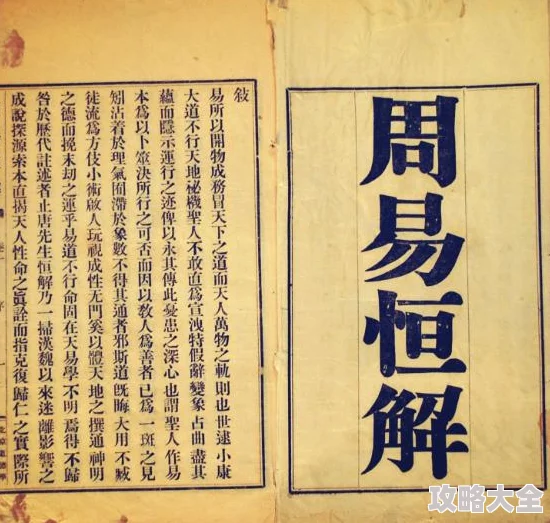 周易恒解
敍
易所以開物成務冒天下之道而天人萬物之軌則也世逮小康
大道不行天地秘機聖人不敢直爲宣洩特假辭變象占曲盡其
蘊而隱示運行之迹俾以永其傳此憂患之深心也謂聖人作易
本爲以卜筮決所行之可否而因以敎人爲善者已爲一斑之見
矧沾着於理氣囿滯於象數不得其通者邪斯道旣晦大用不臧
徒流爲方伎小術啟人玩視成性无門奚以體天地之撰通神明
之德而挽末刧之運乎易道不行命固在天易學不明焉得不歸
咎於歷代註述者止唐先生恒解乃一掃漢魏以來迷離影響之
成說探源索本直揭天人性命之眞詮而指克復歸仁之實際所
序
攻略大全